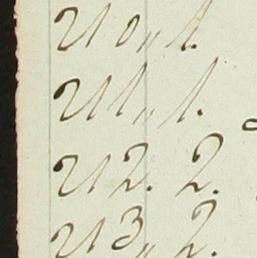 210,, 1.
211,, 1.
212. 2.
213,, 2.